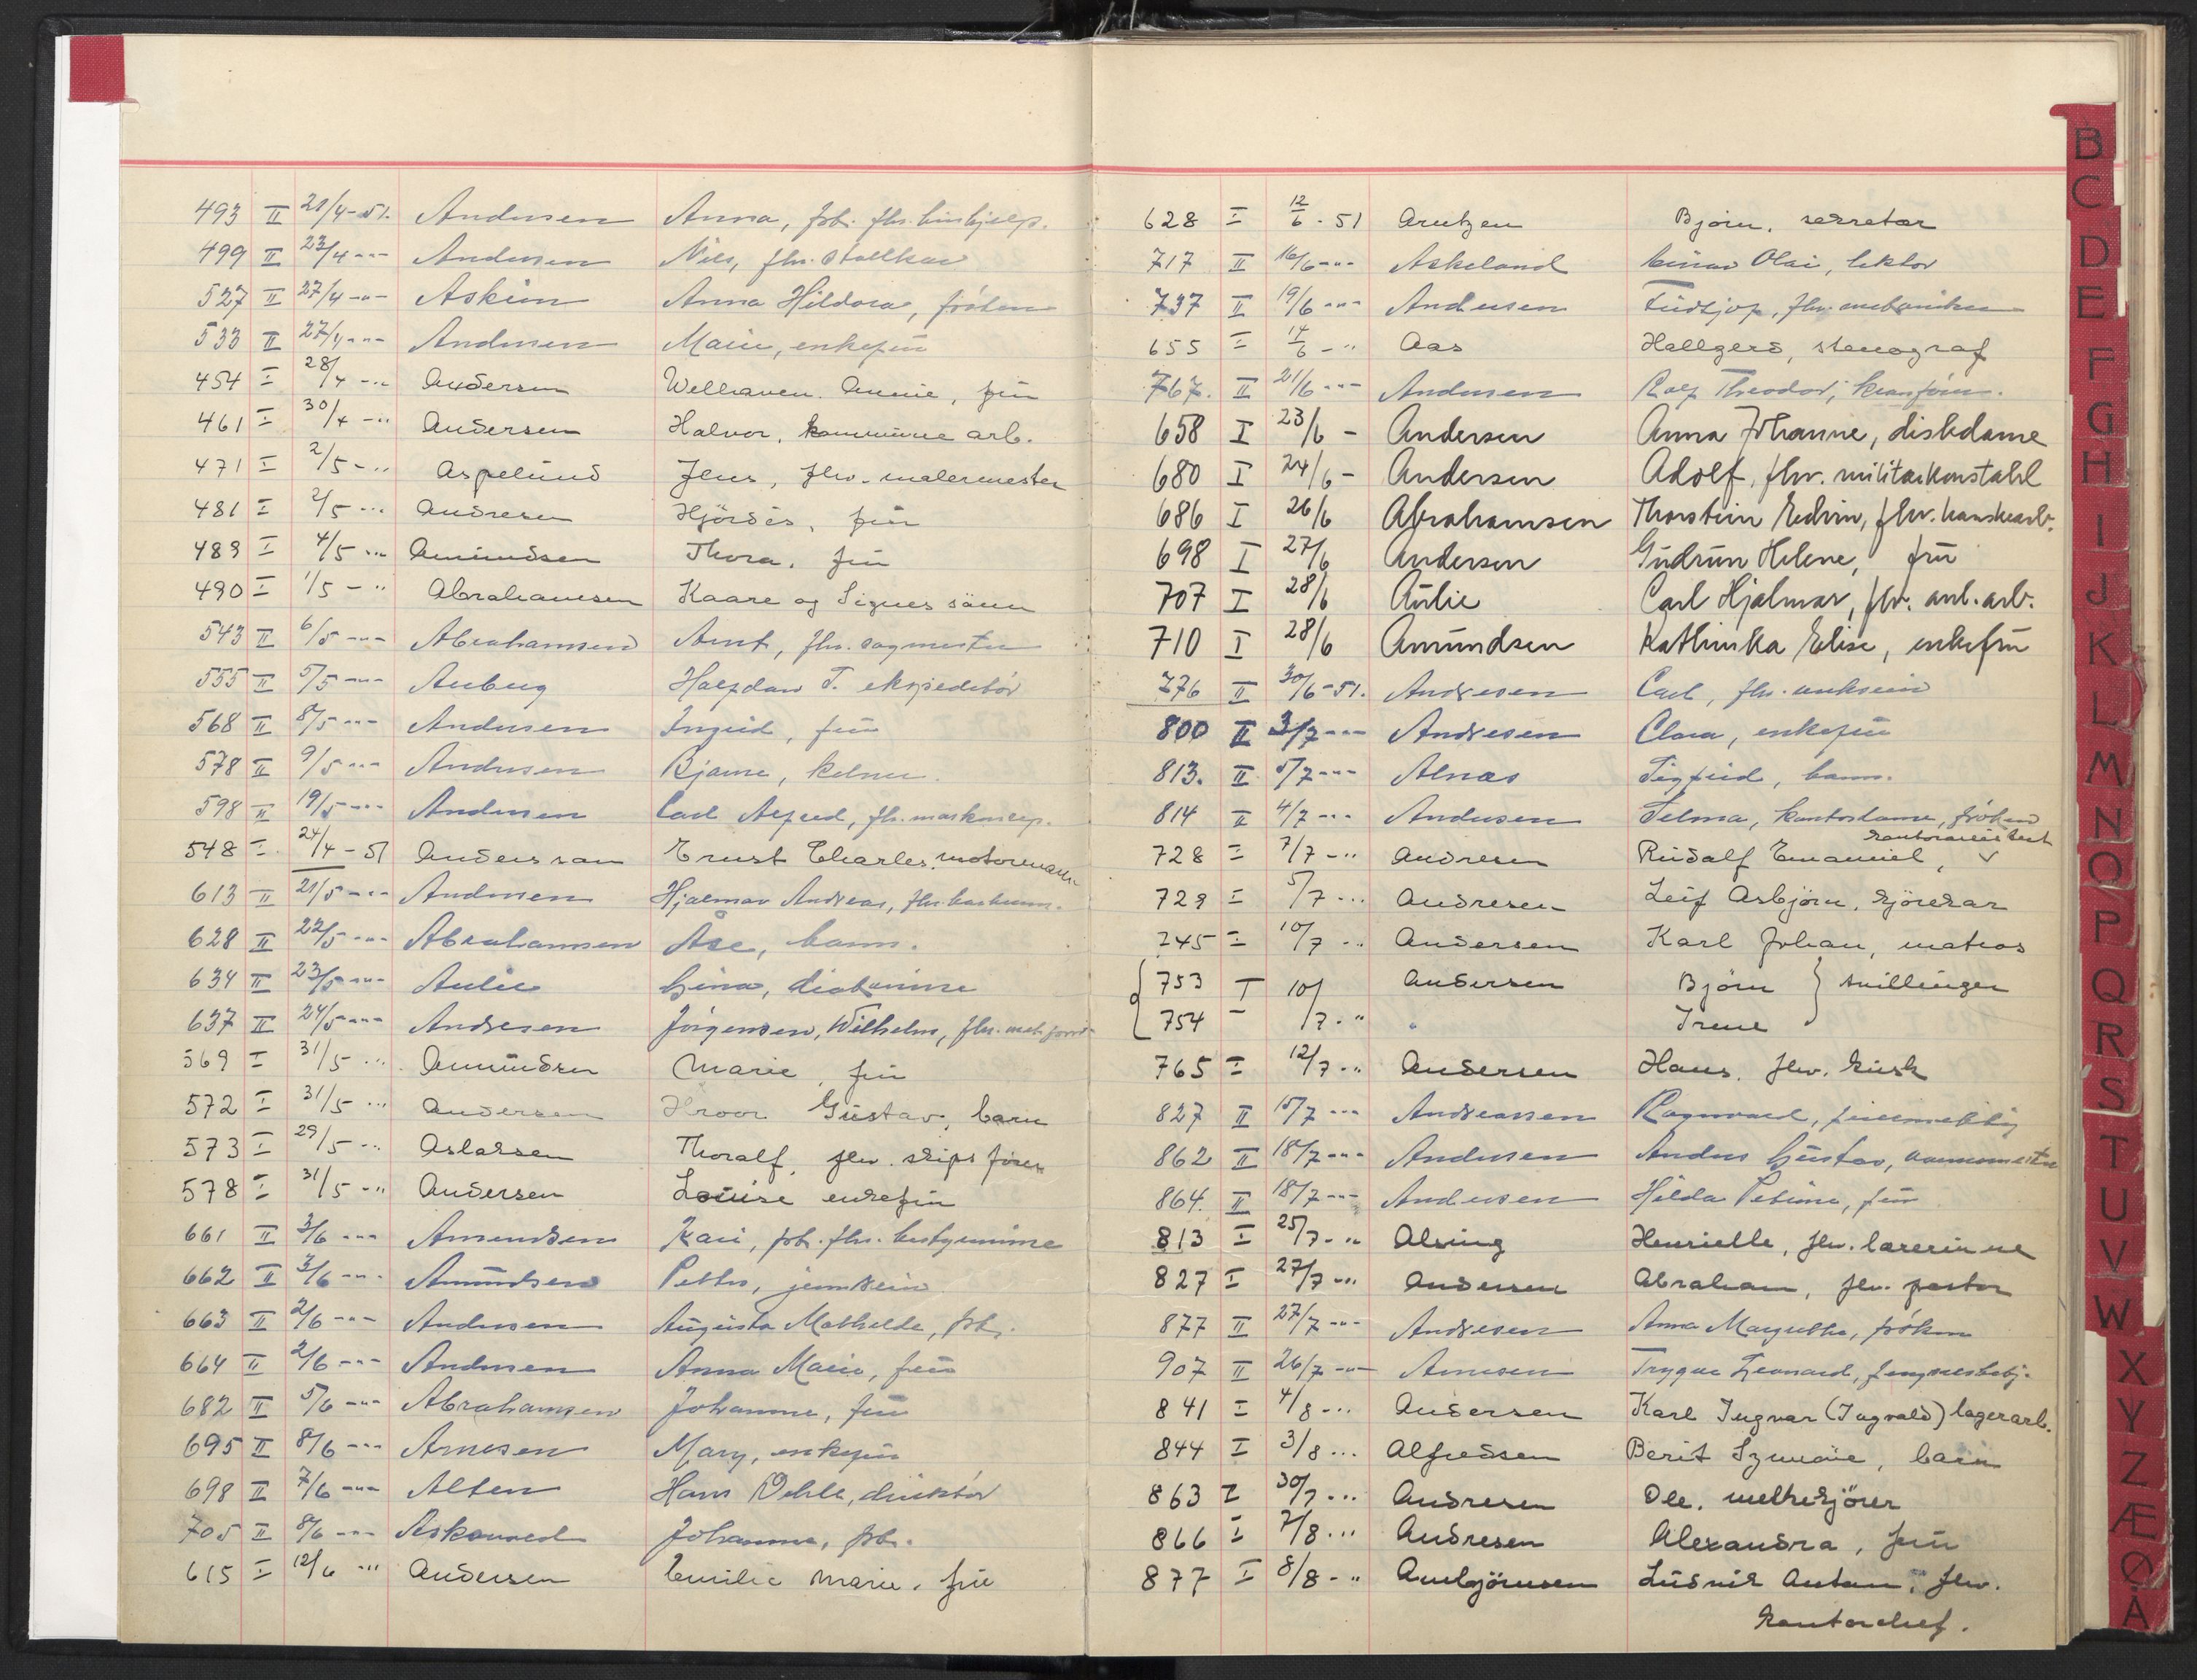 493 II 21/4-51. Andersen Anna, frk. fhv. hushjelp.
499 II 23/4 -"- Andersen Nils, fhv. stallkar
527 II 27/4 -"- Askim Anna Hildora, frøken
533 II 27/4 -"- Andersen Marie, enkefru
454 I 28/4 -" Andersen Welhaven Annie, frü
461 I 30/4 -" Andersen Halvor, kommune arb.
471 I 2/5 -" Aspelund Jens, fhv. malermester
481 I 2/5 -" Andresen Hjördis, frü
489 I 4/5 -" Amundsen Thora, frü
490 I 1/5 -" Abrahamsen Kaare og Signes sønn
543 II 6/5 -"- Abrahamsen Arnt, fhv. sagmester
555 II 5/5 -"- Auberg Halfdan T. ekspeditør
568 II 8/5 -"- Andersen Ingrid, frü
578 II 9/5 -"- Andersen Bjarne, kelner.
598 II 19/5 -"- Andersen Carl Alfred, fhv. maskinrep.
548 I 24/4 - 51 Andersson Ernst Charles, motormann
613 II 21/5 -"- Andersen Hjalmar Andreas, fhv.
628 II 22/5 -"- Abrahamsen Åse, barn.
634 II 23/5 -"- Aulie Gina, diakonisse
637 II 24/5 -"- Andresen Jörgensen, Wilhelm, fhv.
569 I 31/5 -" Amündsen Marie, frü
572 I 31/5 -" Andersen Hroar Gustav, barn
573 I 29/5 -" Aslaksen Thoralf, fhv. skipsfører
578 I 31/5 -" Andersen Louise enkefrü
661 II 3/6 -"- Amundsen Kari, frk. fhv. bestyrerinne
662 II 3/6 -"- Amundsen Petter, jerndreier
663 II 2/6 -"- Andersen Augusta Mathilde, frk.
664 II 2/6 -"- Andersen Anna Marie, frü
682 II 5/6 -"- Abrahamsen Johanne, frü
695 II 8/6 -"- Arnesen Mary, enkefrü
698 II 7/6 -"- Alten Hans Oehle, direktør
705 II 8/6 -"- Johanne, frk.
615 I 12/6 -" Andersen Emilie Marie, frü
628 I 12/6 - 51 Arntzen Bjørn, sekretær
717 II 16/6 -"- Askeland Einar Olai, lektor
737 II 19/6 -"- Andersen Fridtjof, fhv. mekaniker
655 I 14/6 -" Aas Hallgerd, stenograf
767. II 21/6 -"- Andersen Rolf Theodor, kranfører.
658 I 23/6 - Andersen Anna Johanne, diskdame
680 I 24/6 - Andersen Adolf, fhv. militærkonstabl
686 I 26/6 Abrahamsen Thorstein Edvin, fhv. hanskearb.
698 I 27/6 Andersen Gudrün Helene, frü
707 I 28/6 Aülie Carl Hjalmar, fhv. anl.arb.
710 I 28/6 Amündsen Kathinka Elise, enkefrü
776 II 30/6-51. Andresen Carl, fhv.
800 II 3/7 -"- Andresen Clara, enkefrü
813. II 5/7 -"- Alnæs Sigfrid, barn.
814 II 4/7 -"- Andersen Selma, kontordame, frøken
kontorassistent
728 I 7/7 -" Andresen Rudolf Emanuel, v
729 I 5/7 -" Andresen Leif Asbjørn, kjørekar
745 I 10/7 -" Andersen Karl Johan, matros
753 I 10/7 -" Andersen Björn } tvillinger
754 " Irene
765 I 12/7 -" Andersen Hans, fhv. kusk
827 II 15/7 -"- Andreassen Ragnvald,
862 II 18/7 -"- Andersen Anders Gustav,
864. II 18/7 -"- Andersen Hilda Petrine, frü
813 I 25/7 -" Alving Henriette, fhv. lærerinne
827 I 27/7 -" Andersen Abraham, fhv. pastor
877 II 27/7 -"- Andresen Anna Margrethe, frøken
907 II 26/7 -"- Arnesen Trygve Leonard, fengselsbetj.
841 I 4/8 -" Andersen Karl Ingvar (Ingvald) lagerarb.
844 I 3/8 -" Alfredsen Berit Synnøve, barn
863 I 30/7 -" Andresen Ole, melkekjører
866 I 7/8 -" Andresen Alexandra, frü
877 I 8/8 -" Arnbjørnsen Ludvik Anton, fhv.
kontorchef.
B
C
D
E
F
G
H
I
J
K
L
M
N
O
P
Q
R
S
T
U
V
W
X
Y
Z
Æ
Ø
Å